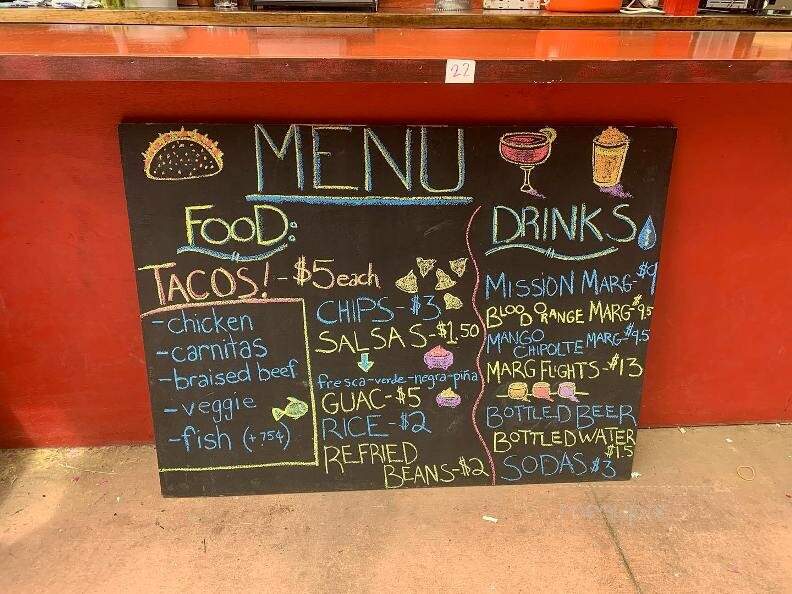 22
MENU
FOOD:
TACOS! - $5 each
- chicken
- carnitas
- braised beef
- veggie
- fish (+75¢)
CHIPS - $3
SALSAS - $1.50
fresca - verde - negra - piña
GUAC - $5
RICE - $2
REFRIED
BEANS - $2
DRINKS
MISSION MARG - $9
BLOOD ORANGE MARG - $9.5
MANGO
CHIPOLTE MARG - $9.5
MARG FLIGHTS - $13
BOTTLED BEER
BOTTLED WATER
$1.5
SODAS $3